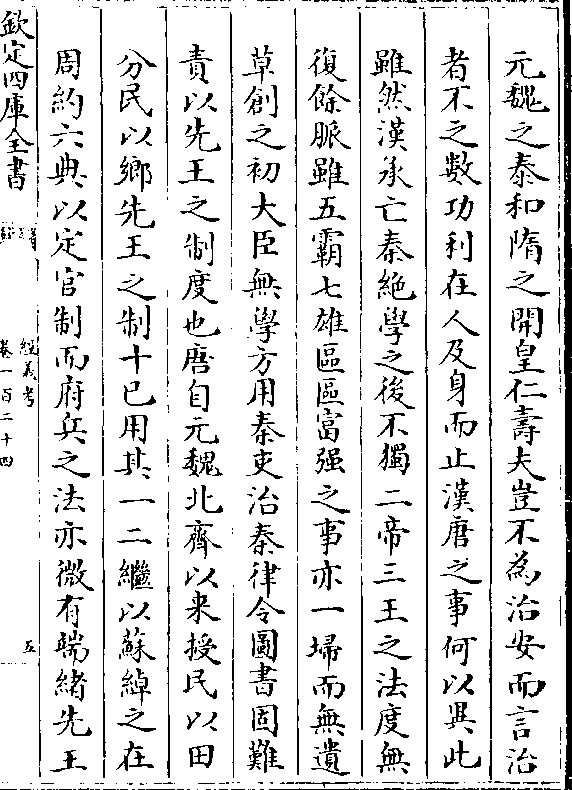 元魏之泰和隋之開皇仁壽夫豈不為治安而言治
者不之數功利在人及身而止漢唐之事何以異此
雖然漢承亡秦絶學之後不獨二帝三王之法度無
復餘脈雖五霸七雄區區富强之事亦一埽而無遺
草創之初大臣無學方用秦吏治秦律令圖書固難
責以先王之制度也唐自元魏北齊以来授民以田
分民以鄉先王之制十已用其一二繼以蘇綽之在
周約六典以定官制而府兵之法亦微有端緒先王
欽定四庫全書
經義考
卷一百二十四
五